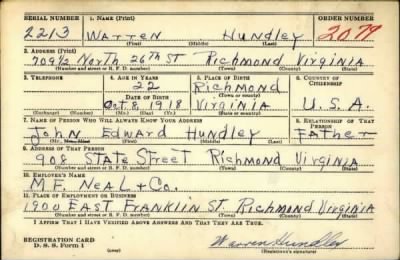 SERIAL NUMBER 1. NAME (Print) ORDER NUMBER
2213 WARREN HUNDLEY 2079
(First) (Middle) (Last)
2. ADDRESS (Print)
709½ NORTH 26TH ST RICHMOND VIRGINIA
(Number and street or R. F. D. number) (Town) (County) (State)
3. TELEPHONE 4. AGE IN YEARS 5. PLACE OF BIRTH 6. COUNTRY OF CITIZENSHIP
22 RICHMOND
DATE OF BIRTH (Town or county)
OCT. 8, 1918 VIRGINIA U. S. A.
(Exchange) (Number) (Mo.) (Day) (Yr.) (State or country)
7. NAME OF PERSON WHO WILL ALWAYS KNOW YOUR ADDRESS 8. RELATIONSHIP OF THAT PERSON
JOHN EDWARD HUNDLEY FATHER
(Mr., Mrs., Miss) (First) (Middle) (Last)
9. ADDRESS OF THAT PERSON
908 STATE STREET RICHMOND VIRGINIA
(Number and street or R. F. D. number) (Town) (County) (State)
10. EMPLOYER'S NAME
M. F. NEAL + CO.
11. PLACE OF EMPLOYMENT OR BUSINESS
1900 EAST FRANKLIN ST. RICHMOND VIRGINIA
(Number and street or R. F. D. number) (Town) (County) (State)
I AFFIRM THAT I HAVE VERIFIED ABOVE ANSWERS AND THAT THEY ARE TRUE.
REGISTRATION CARD
D. S. S. FORM 1 (over) Warren Hundley
(Registrant's signature)